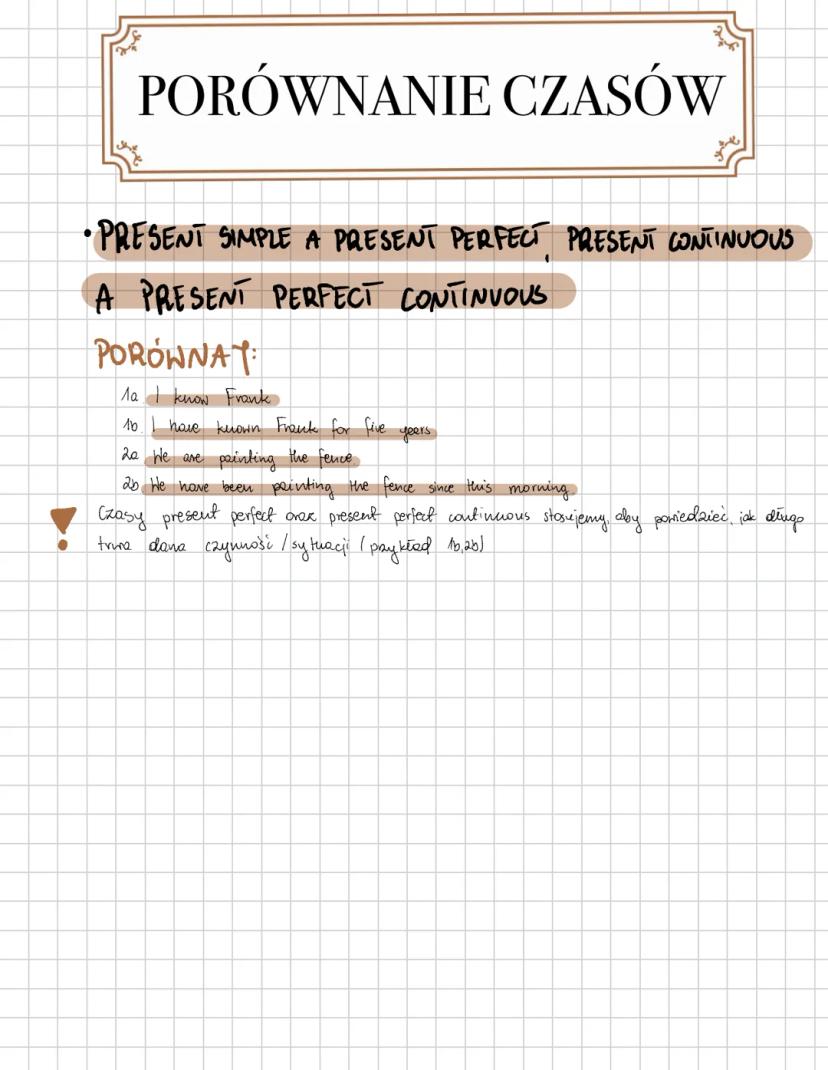 PORÓWNANIE CZASÓW
• PRESENT SIMPLE A PRESENT PERFECT, PRESENT CONTINUOUS
A PRESENT PERFECT CONTINUOUS
PORÓWNAJ:
1a. I know Frank
1b. I have known Frank for five years
2a We are painting the fence
2b We have been painting the fence since this morning
! Czasy present perfect oraz present perfect continuous stosujemy, aby powiedzieć, jak długo
trwa dana czynność / sytuacji (przykład 1b, 2b)